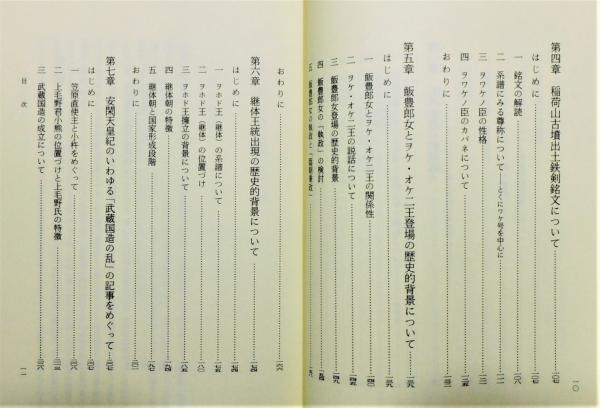 第四章 稲荷山古墳出土鉄剣銘文について…一〇七
はじめに…一〇七
一 銘文の解読…一〇八
二 系譜にみる尊称について――とくにワケ号を中心に…
三 ヲワケノ臣の性格…
四 ヲワケノ臣のカバネについて…
おわりに…
第五章 飯豊郎女とヲケ・オケ二王登場の歴史的背景について…
はじめに…
一 飯豊郎女とヲケ・オケ二王の関係性…
二 ヲケ・オケ二王の説話について…
三 飯豊郎女登場の歴史的背景…
四 飯豊郎女の「執政」の検討…
五 飯豊郎女の執政と「臨朝秉政」
一〇
おわりに…
第六章 継体王統出現の歴史的背景について…
はじめに…
一 ヲホド王（継体）の系譜について…
二 ヲホド王（継体）の位置づけ…
三 ヲホド王擁立の背景について…
四 継体朝の特徴…
五 継体朝と国家形成段階…
おわりに…
第七章 安閑天皇紀のいわゆる「武蔵国造の乱」の記事をめぐって…
はじめに…
一 笠原直使主と小杵をめぐって…
二 上毛野君小熊の位置づけと上毛野氏の特徴…
三 武蔵国造の成立について…
目次
一一